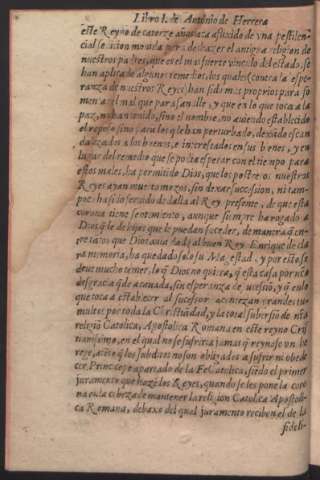 Libro I. de Antonio de Herrera
este Reyno de catorze años aca afligido de vna pestilen-
cial sedicion mouida para deshazer el antigua religion de
nuestros padres, que es el mas fuerte vinculo del estado, se
han aplicado algunos remedios, los quales contra la espe-
ranza de nuestros Reyes han sido mas proprios para fo
mentar el mal que para sanalle, y que en lo que toca a la
paz, no han tenido, sino el nombre, no auiendo establecido
el reposo sino para los q̃ le han perturbado, dexãdo escan
dalizados a los buenos, e interesados en sus bienes, y en
lugar del remedio que se podia esperar con el tiempo para
estos males, ha permitido Dios, que los postreros nuestros
Reyes ayan muerto moços, sin dexar succession, ni tam-
poco ha sido seruido de dalla al Rey presente, de que esta
corona tiene sentimiento, aunque siempre ha rogado a
Dios q̃ le de hijos que le puedan suceder, de manera q̃ en-
tre tãtos que Dios auia dado al buen Rey Enrique de cla
ra memoria, ha quedado solo su Magestad, y por esto se
deue mucho temer, lo q̃ Dios no quiera, q̃ esta casa por n̄ra
desgracia quede acauada, sin esperança de sucesiõ, y q̃ en lo
que toca a establecer al sucesor acontezcan grandes tu-
multos por toda la Christiãdad, y la total subuersiõ de n̄ra
religiõ Catolica, Apostolica Romana en este reyno Cris
tianissimo, en el qual no se sufriria jamas q̃ reynase vn he
rege, ateto q̃ los subditos no son obligados a sufrir ni obede
cer Principe apartado de la Fe Catolica, siẽdo el primer
juramento que hazẽ los Reyes, quando se les pone la coro
na en la cabeza de mantener la religion Catolica Apostoli-
ca Romana, debaxo del qual juramento reciben el de la
fideli-